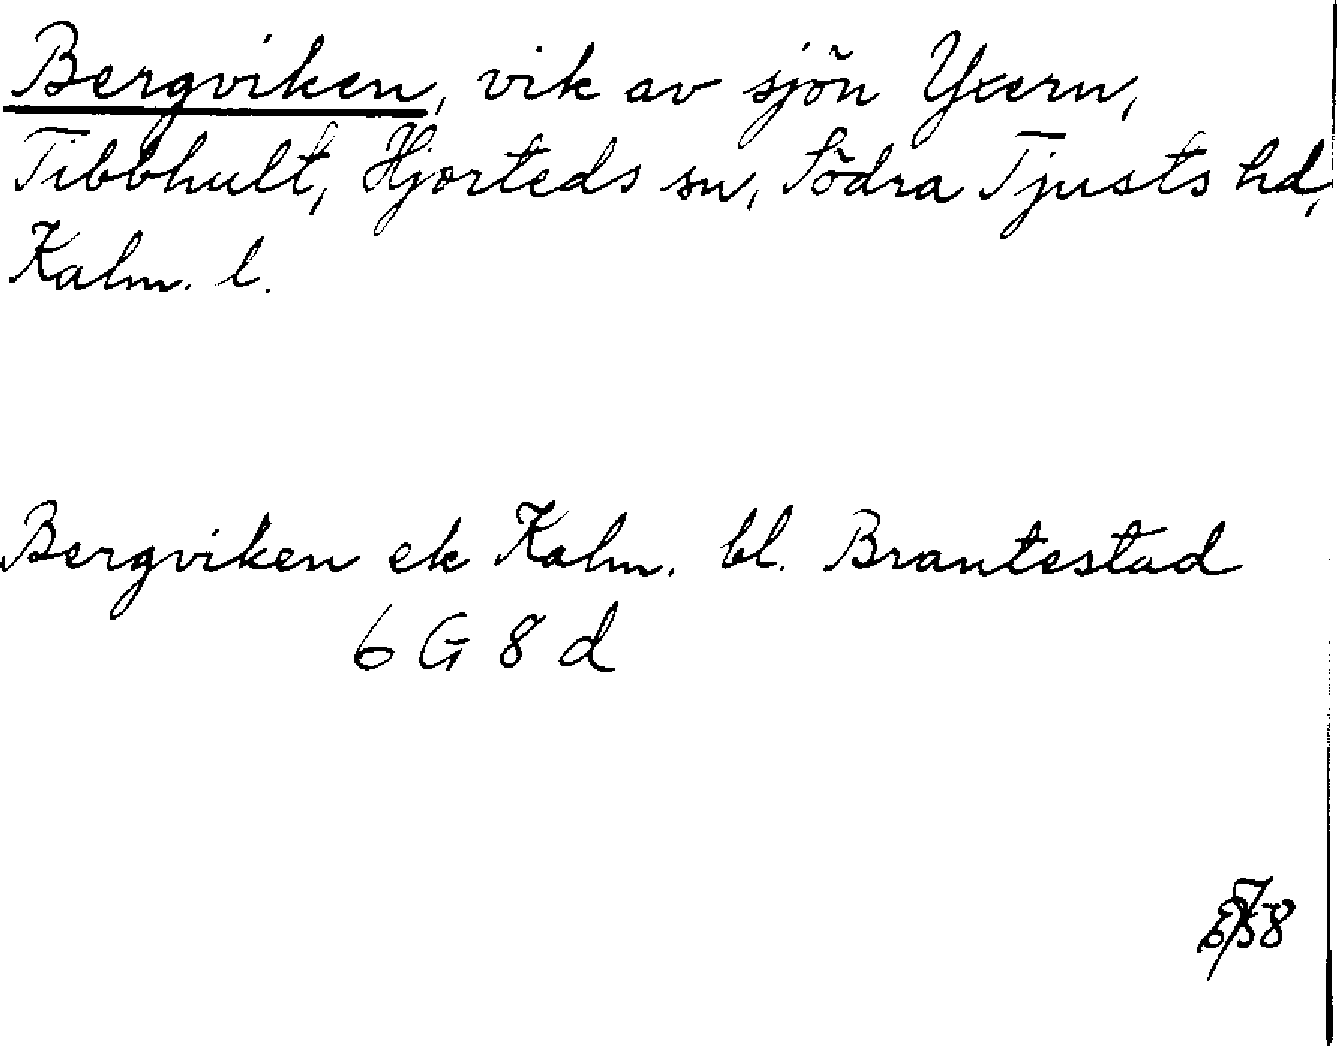 Bergviken, vik av sjön Yxern,
Tibbhult, Hjorteds sn, Södra Tjusts hd,
Kalm. l.
Bergviken ek Kalm. bl. Brantestad
6 G 8 d